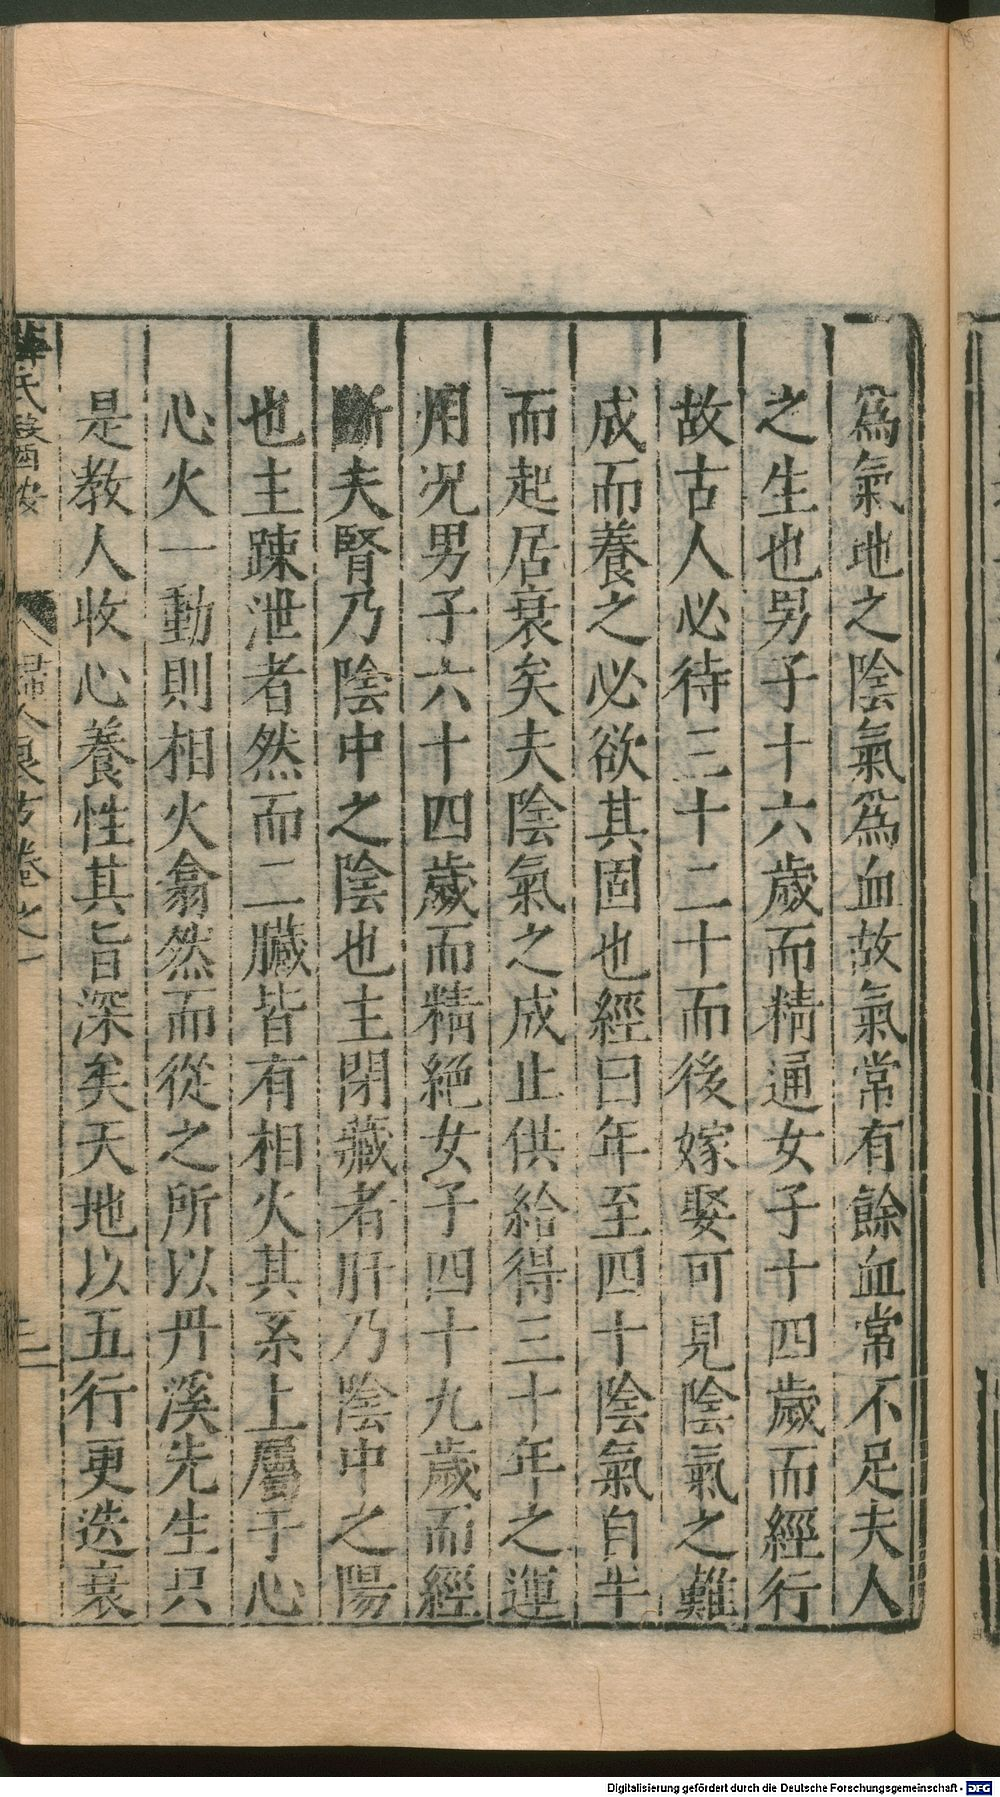 爲氣地之陰氣爲血故氣常有餘血常不足夫人
之生也男子十六歲而精通女子十四歲而經行
故古人必待三十二十而後嫁娶可見陰氣之難
成而養之必欲其固也經曰年至四十陰氣自半
而起居衰矣夫陰氣之成止供給得三十年之運
用况男子六十四歲而精絶女子四十九歲而經
斷夫腎乃陰中之陰也主閉藏者肝乃陰中之陽
也主踈泄者然而二臓皆有相火其系上屬于心
心火一動則相火翕然而從之所以丹溪先生只
是教人收心養性其旨深矣天地以五行更迭衰
薛氏醫案 婦人良方卷之一 三
Digitalisierung gefördert durch die Deutsche Forschungsgemeinschaft - DFG